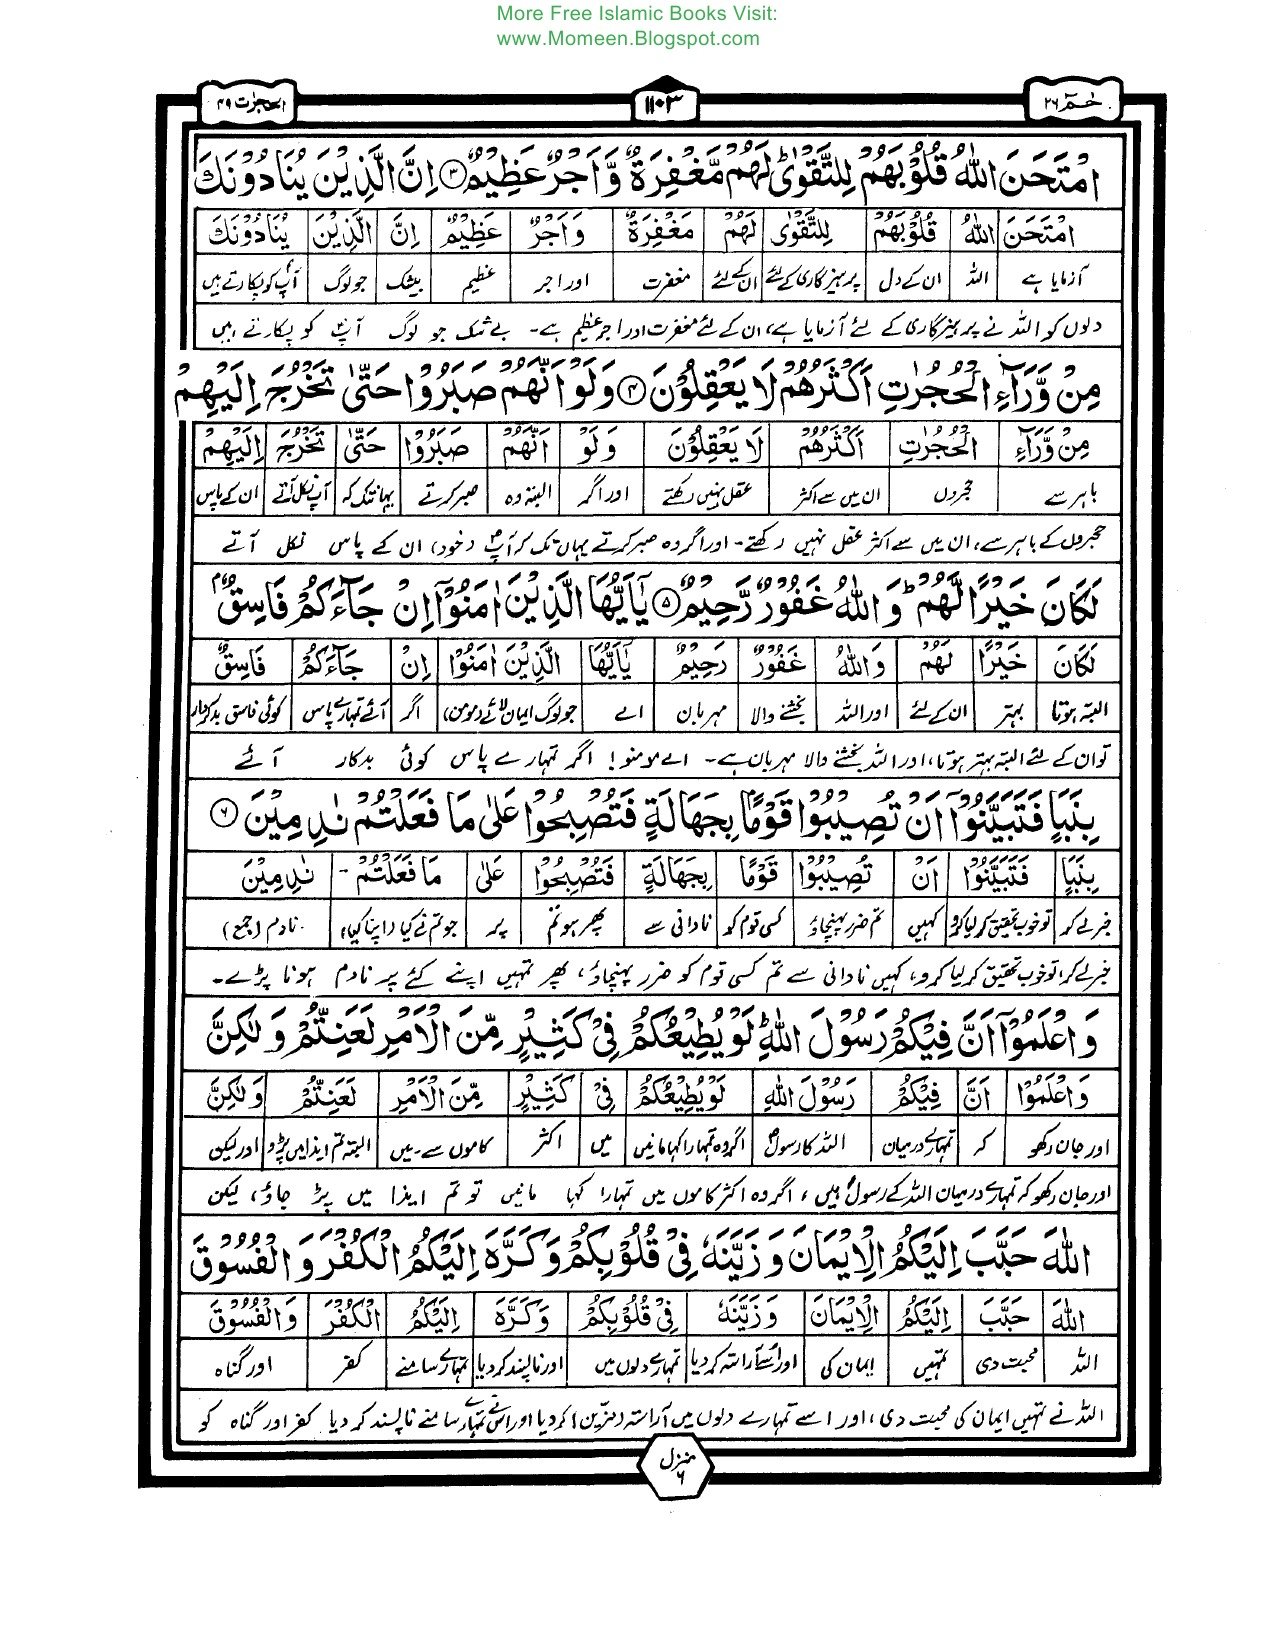 More Free Islamic Books Visit:
www.Momeen.Blogspot.com
حٰمٓ ٢٦
١١٠٣
الحجرٰت ٤٩
امْتَحَنَ اللّٰهُ قُلُوْبَهُمْ لِلتَّقْوٰىؕ لَهُمْ مَّغْفِرَةٌ وَّاَجْرٌ عَظِيْمٌ ۝٣ اِنَّ الَّذِيْنَ يُنَادُوْنَكَ
امْتَحَنَ اللّٰهُ قُلُوْبَهُمْ لِلتَّقْوٰى لَهُمْ مَّغْفِرَةٌ وَاَجْرٌ عَظِيْمٌ اِنَّ الَّذِيْنَ يُنَادُوْنَكَ
آزمایا ہے اللہ ان کے دل پرہیزگاری کے لئے ان کے لئے مغفرت اور اجر عظیم بیشک جو لوگ آپؐ کو پکارتے ہیں
دلوں کو اللہ نے پرہیزگاری کے لئے آزمایا ہے، ان کے لئے مغفرت اور اجر عظیم ہے۔ بے شک جو لوگ آپؐ کو پکارتے ہیں
مِنْ وَّرَآءِ الْحُجُرٰتِ اَكْثَرُهُمْ لَا يَعْقِلُوْنَ ۝٤ وَلَوْ اَنَّهُمْ صَبَرُوْا حَتّٰى تَخْرُجَ اِلَيْهِمْ
مِنْ وَّرَآءِ الْحُجُرٰتِ اَكْثَرُهُمْ لَا يَعْقِلُوْنَ وَلَوْ اَنَّهُمْ صَبَرُوْا حَتّٰى تَخْرُجَ اِلَيْهِمْ
باہر سے حجروں ان میں سے اکثر عقل نہیں رکھتے اور اگر البتہ وہ صبر کرتے یہانتک کہ آپ نکل آتے ان کے پاس
حجروں کے باہر سے، ان میں سے اکثر عقل نہیں رکھتے۔ اور اگر وہ صبر کرتے یہاں تک کہ آپؐ (خود) ان کے پاس نکل آتے
لَكَانَ خَيْرًا لَّهُمْؕ وَاللّٰهُ غَفُوْرٌ رَّحِيْمٌ ۝٥ يٰٓاَيُّهَا الَّذِيْنَ اٰمَنُوْٓا اِنْ جَآءَكُمْ فَاسِقٌۢ
لَكَانَ خَيْرًا لَّهُمْ وَاللّٰهُ غَفُوْرٌ رَحِيْمٌ يٰٓاَيُّهَا الَّذِيْنَ اٰمَنُوْٓا اِنْ جَآءَكُمْ فَاسِقٌ
البتہ ہوتا بہتر ان کے لئے اور اللہ بخشنے والا مہربان اے جو لوگ ایمان لائے (مومن) اگر آئے تمہارے پاس کوئی فاسق بدکردار
تو ان کے لئے البتہ بہتر ہوتا، اور اللہ بخشنے والا مہربان ہے۔ اے مومنو! اگر تمہارے پاس کوئی بدکار آئے
بِنَبَاٍ فَتَبَيَّنُوْٓا اَنْ تُصِيْبُوْا قَوْمًۢا بِجَهَالَةٍ فَتُصْبِحُوْا عَلٰى مَا فَعَلْتُمْ نٰدِمِيْنَ ۝٦
بِنَبَاٍ فَتَبَيَّنُوْٓا اَنْ تُصِيْبُوْا قَوْمًۢا بِجَهَالَةٍ فَتُصْبِحُوْا عَلٰى مَا فَعَلْتُمْ نٰدِمِيْنَ
خبر لے کر تو خوب تحقیق کرلیا کرو کہیں تم ضرر پہنچاؤ کسی قوم کو نادانی سے پھر ہو تم پر جو تم نے کیا (اپنا کیا) نادم (جمع)
خبر لے کر، تو خوب تحقیق کر لیا کرو، کہیں نادانی سے تم کسی قوم کو ضرر پہنچاؤ، پھر تمہیں اپنے کئے پر نادم ہونا پڑے۔
وَاعْلَمُوْٓا اَنَّ فِيْكُمْ رَسُوْلَ اللّٰهِؕ لَوْ يُطِيْعُكُمْ فِيْ كَثِيْرٍ مِّنَ الْاَمْرِ لَعَنِتُّمْ وَلٰكِنَّ
وَاعْلَمُوْٓا اَنَّ فِيْكُمْ رَسُوْلَ اللّٰهِ لَوْ يُطِيْعُكُمْ فِيْ كَثِيْرٍ مِّنَ الْاَمْرِ لَعَنِتُّمْ وَلٰكِنَّ
اور جان رکھو کہ تمہارے درمیان اللہ کا رسولؐ اگر وہ تمہارا کہا مانیں میں اکثر کاموں سے۔ میں البتہ تم ایذا میں پڑو اور لیکن
اور جان رکھو کہ تمہارے درمیان اللہ کے رسولؐ ہیں، اگر وہ اکثر کاموں میں تمہارا کہا مانیں تو تم ایذا میں پڑ جاؤ، لیکن
اللّٰهَ حَبَّبَ اِلَيْكُمُ الْاِيْمَانَ وَزَيَّنَهٗ فِيْ قُلُوْبِكُمْ وَكَرَّهَ اِلَيْكُمُ الْكُفْرَ وَالْفُسُوْقَ
اللّٰهَ حَبَّبَ اِلَيْكُمُ الْاِيْمَانَ وَزَيَّنَهٗ فِيْ قُلُوْبِكُمْ وَكَرَّهَ اِلَيْكُمُ الْكُفْرَ وَالْفُسُوْقَ
اللہ محبت دی تمہیں ایمان کی اور اسے آراستہ کر دیا تمہارے دلوں میں اور ناپسند کر دیا تمہارے سامنے کفر اور گناہ
اللہ نے تمہیں ایمان کی محبت دی، اور اسے تمہارے دلوں میں آراستہ (مزین) کر دیا اور اس نے تمہارے سامنے ناپسند کر دیا کفر اور گناہ کو
منزل ٦